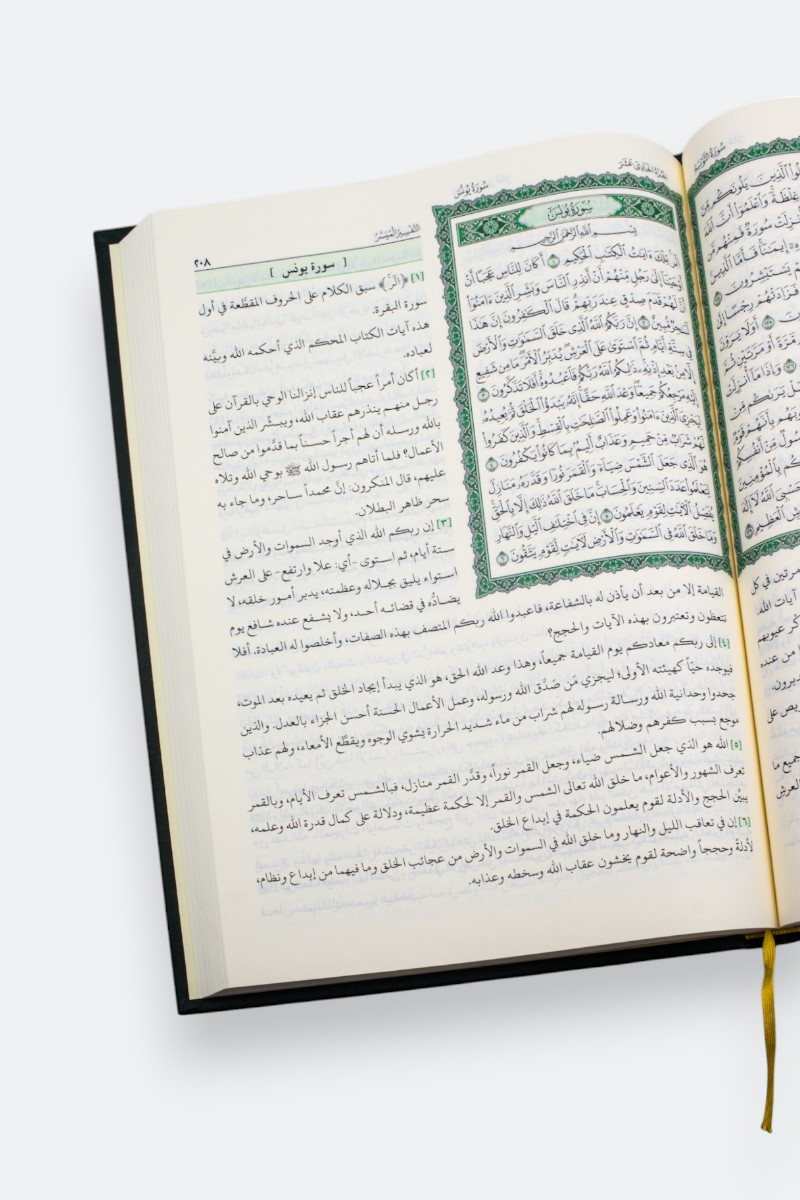 الجزء الحادي عشر
سورة يونس
التفسير الميسر
٢٠٨
سُورَةُ يُونُسَ
بِسْمِ اللَّهِ الرَّحْمَٰنِ الرَّحِيمِ
الٓر تِلْكَ ءَايَٰتُ ٱلْكِتَٰبِ ٱلْحَكِيمِ ۝١ أَكَانَ لِلنَّاسِ عَجَبًا أَنْ
أَوْحَيْنَآ إِلَىٰ رَجُلٍ مِّنْهُمْ أَنْ أَنذِرِ ٱلنَّاسَ وَبَشِّرِ ٱلَّذِينَ ءَامَنُوٓا۟
أَنَّ لَهُمْ قَدَمَ صِدْقٍ عِندَ رَبِّهِمْ قَالَ ٱلْكَٰفِرُونَ إِنَّ هَٰذَا
لَسَٰحِرٌ مُّبِينٌ ۝٢ إِنَّ رَبَّكُمُ ٱللَّهُ ٱلَّذِى خَلَقَ ٱلسَّمَٰوَٰتِ وَٱلْأَرْضَ
فِى سِتَّةِ أَيَّامٍ ثُمَّ ٱسْتَوَىٰ عَلَى ٱلْعَرْشِ يُدَبِّرُ ٱلْأَمْرَ مَا مِن شَفِيعٍ
إِلَّا مِنۢ بَعْدِ إِذْنِهِۦ ذَٰلِكُمُ ٱللَّهُ رَبُّكُمْ فَٱعْبُدُوهُ أَفَلَا تَذَكَّرُونَ ۝٣
إِلَيْهِ مَرْجِعُكُمْ جَمِيعًا وَعْدَ ٱللَّهِ حَقًّا إِنَّهُۥ يَبْدَؤُا۟ ٱلْخَلْقَ ثُمَّ يُعِيدُهُۥ
لِيَجْزِىَ ٱلَّذِينَ ءَامَنُوا۟ وَعَمِلُوا۟ ٱلصَّٰلِحَٰتِ بِٱلْقِسْطِ وَٱلَّذِينَ كَفَرُوا۟
لَهُمْ شَرَابٌ مِّنْ حَمِيمٍ وَعَذَابٌ أَلِيمٌۢ بِمَا كَانُوا۟ يَكْفُرُونَ ۝٤
هُوَ ٱلَّذِى جَعَلَ ٱلشَّمْسَ ضِيَآءً وَٱلْقَمَرَ نُورًا وَقَدَّرَهُۥ مَنَازِلَ
لِتَعْلَمُوا۟ عَدَدَ ٱلسِّنِينَ وَٱلْحِسَابَ مَا خَلَقَ ٱللَّهُ ذَٰلِكَ إِلَّا بِٱلْحَقِّ
يُفَصِّلُ ٱلْءَايَٰتِ لِقَوْمٍ يَعْلَمُونَ ۝٥ إِنَّ فِى ٱخْتِلَٰفِ ٱلَّيْلِ وَٱلنَّهَارِ
وَمَا خَلَقَ ٱللَّهُ فِى ٱلسَّمَٰوَٰتِ وَٱلْأَرْضِ لَءَايَٰتٍ لِّقَوْمٍ يَتَّقُونَ ۝٦
[ سورة يونس ]
[١] ﴿الٓر﴾ سبق الكلام على الحروف المقطَّعة في أول
سورة البقرة.
هذه آيات الكتاب المحكم الذي أحكمه الله وبيَّنه
لعباده.
[٢] أكان أمراً عجباً للناس إنزالنا الوحي بالقرآن على
رجل منهم ينذرهم عقاب الله، ويبشِّر الذين آمنوا
بالله ورسله أن لهم أجراً حسناً بما قدَّموا من صالح
الأعمال؟ فلما أتاهم رسول الله ﷺ بوحي الله وتلاه
عليهم، قال المنكرون: إنَّ محمداً ساحر، وما جاء به
سحر ظاهر البطلان.
[٣] إن ربكم الله الذي أوجد السموات والأرض في
ستة أيام، ثم استوى -أي: علا وارتفع- على العرش
استواء يليق بجلاله وعظمته، يدبر أمور خلقه، لا
يضادُّه في قضائه أحد، ولا يشفع عنده شافع يوم
القيامة إلا من بعد أن يأذن له بالشفاعة، فاعبدوا الله ربكم المتصف بهذه الصفات، وأخلصوا له العبادة. أفلا
تتعظون وتعتبرون بهذه الآيات والحجج؟
[٤] إلى ربكم معادكم يوم القيامة جميعاً، وهذا وعد الله الحق، هو الذي يبدأ إيجاد الخلق ثم يعيده بعد الموت،
فيوجده حيّاً كهيئته الأولى؛ ليجزي مَن صَدَّق الله ورسوله، وعمل الأعمال الحسنة أحسن الجزاء بالعدل. والذين
جحدوا وحدانية الله ورسالة رسوله لهم شراب من ماء شديد الحرارة يشوي الوجوه ويقطِّع الأمعاء، ولهم عذاب
موجع بسبب كفرهم وضلالهم.
[٥] الله هو الذي جعل الشمس ضياء، وجعل القمر نوراً، وقدَّر القمر منازل، فبالشمس تعرف الأيام، وبالقمر
تعرف الشهور والأعوام، ما خلق الله تعالى الشمس والقمر إلا لحكمة عظيمة، ودلالة على كمال قدرة الله وعلمه،
يبيِّن الحجج والأدلة لقوم يعلمون الحكمة في إبداع الخلق.
[٦] إن في تعاقب الليل والنهار وما خلق الله في السموات والأرض من عجائب الخلق وما فيهما من إبداع ونظام،
لأدلةً وحججاً واضحة لقوم يخشون عقاب الله وسخطه وعذابه.